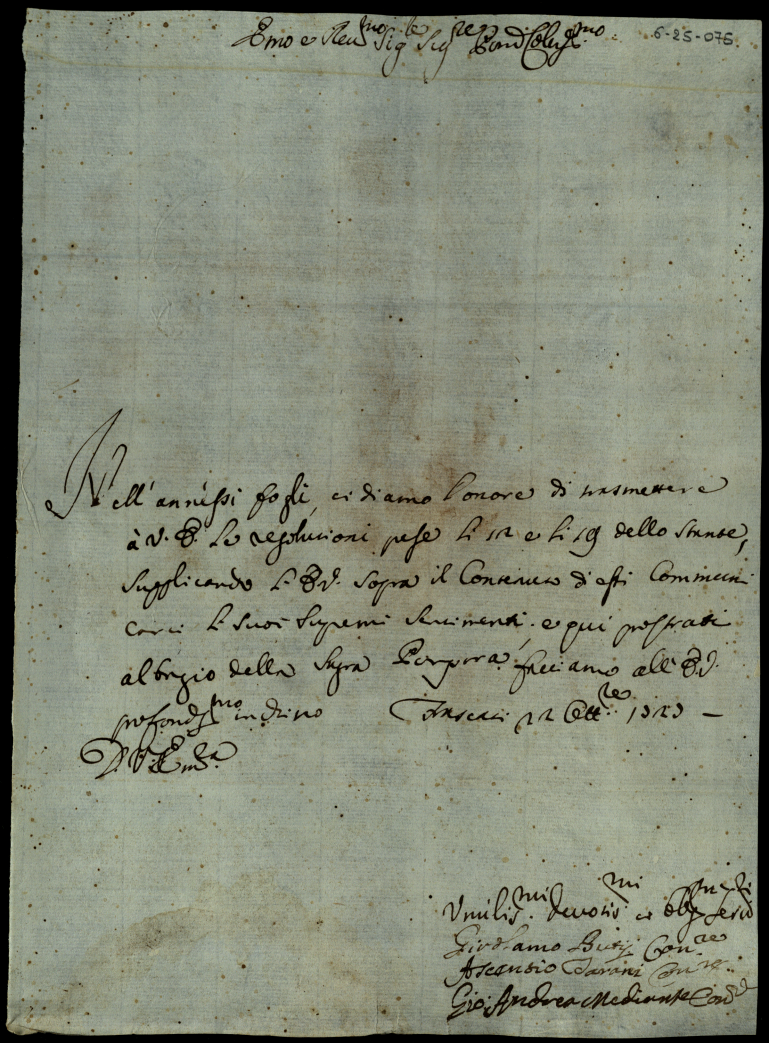 Emo e Reu.mo Sig.le Sig.re Pron Col.mo
6-25-075
Nell'annessi fogli, ci diamo l'onore di trasmettere
à V. E. le resolutioni prese li 12 e li 19 dello stante,
supplicando l'E.V. sopra il Contenuto di essi Communi
carci li suoi supremi sentimenti, e qui prostrati
al bagio della Sagra Porpora, facciamo all'E.V.
profondis.mo inchino Frascati 22 Ott.re 1727 —
D. V. Em.za
Umilis.mi deuotis.mi et Obb.mi Seru.ri
Girolamo Con.re
Ascensio Con.re
Gio: Andrea Mediante Con.re